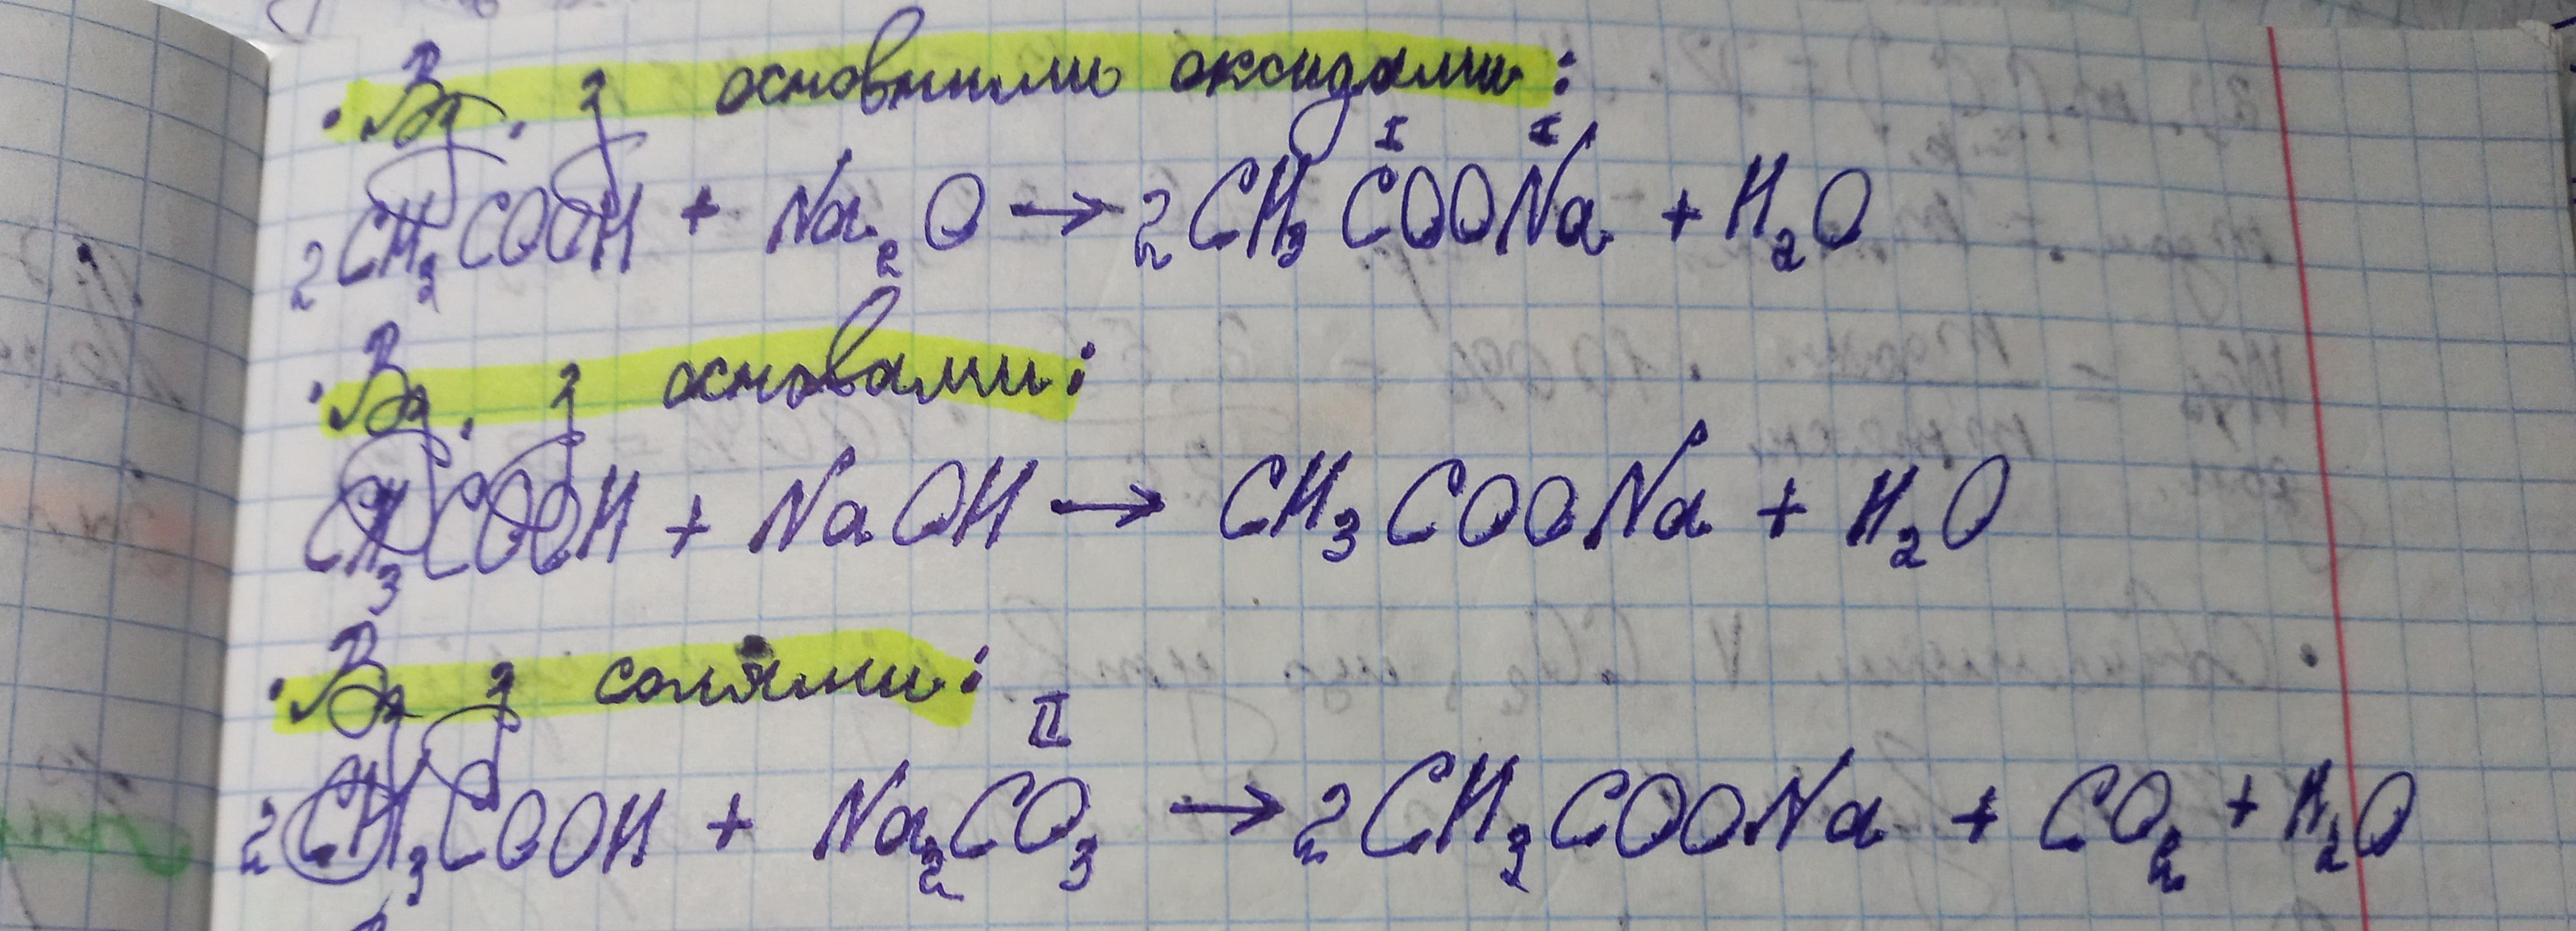 • Вз. з основними оксидами:
2CH₃COOH + Na₂O → 2CH₃COONa + H₂O
I I
• Вз. з основами:
CH₃COOH + NaOH → CH₃COONa + H₂O
• Вз з солями:
II
2CH₃COOH + Na₂CO₃ → 2CH₃COONa + CO₂ + H₂O